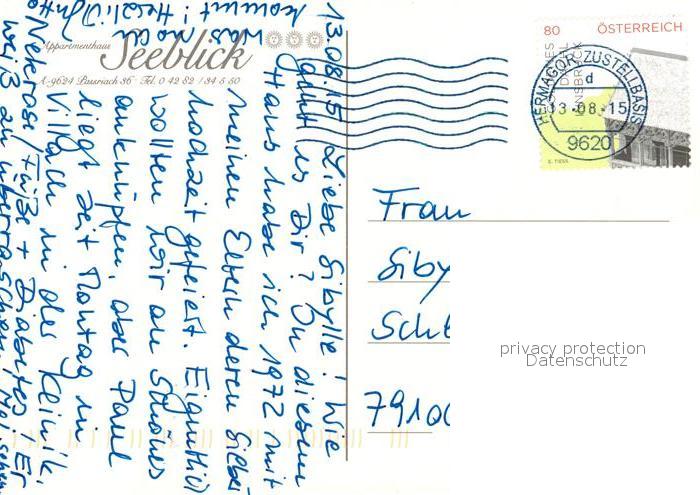 Appartementhaus
Seeblick
A-9624 Passriach 36 · Tel. 0 42 82 / 34 5 50
13.08.15 Liebe Sibylle! Wie
geht es Dir? In diesem
Haus habe ich 1972 mit
meinen Eltern deren Silber
hochzeit gefeiert. Eigentlich
wollten wir an Schönes
anknüpfen, aber Paul
liegt seit Montag in
Villach in der Klinik.
Nekrose Füße + Diabetes. Er
weiß zu überraschen. Mal sehen
was noch
kommt! Herzlich Jutta
80 ÖSTERREICH
HERMAGOR-ZUSTELLBASIS
d
13-08-15
9620
Frau
Siby
Sch
7910
privacy protection
Datenschutz